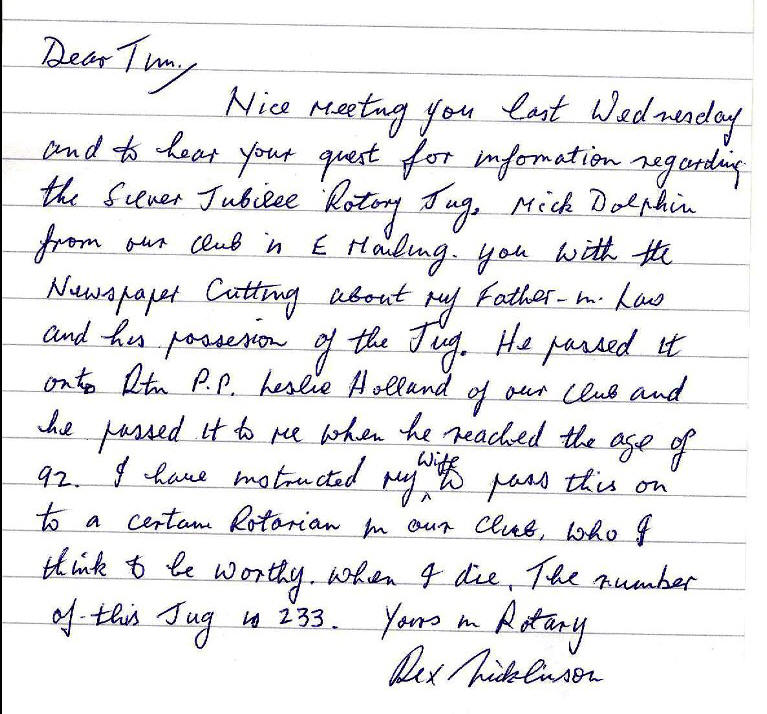 Dear Tim,
Nice meeting you last Wednesday
and to hear your quest for infomation regarding
the Silver Jubilee Rotary Jug. Mick Dolphin
from our club is E Mailing. you with the
Newspaper Cutting about my Father-in-Law
and his possesion of the Jug. He passed it
onto Rtn P.P. Leslie Holland of our club and
he passed it to me when he reached the age of
92. I have instructed my Wife to pass this on
to a certain Rotarian in our Club, who I
think to be worthy. when I die. The number
of this Jug is 233. Yours in Rotary
Rex Nicklinson